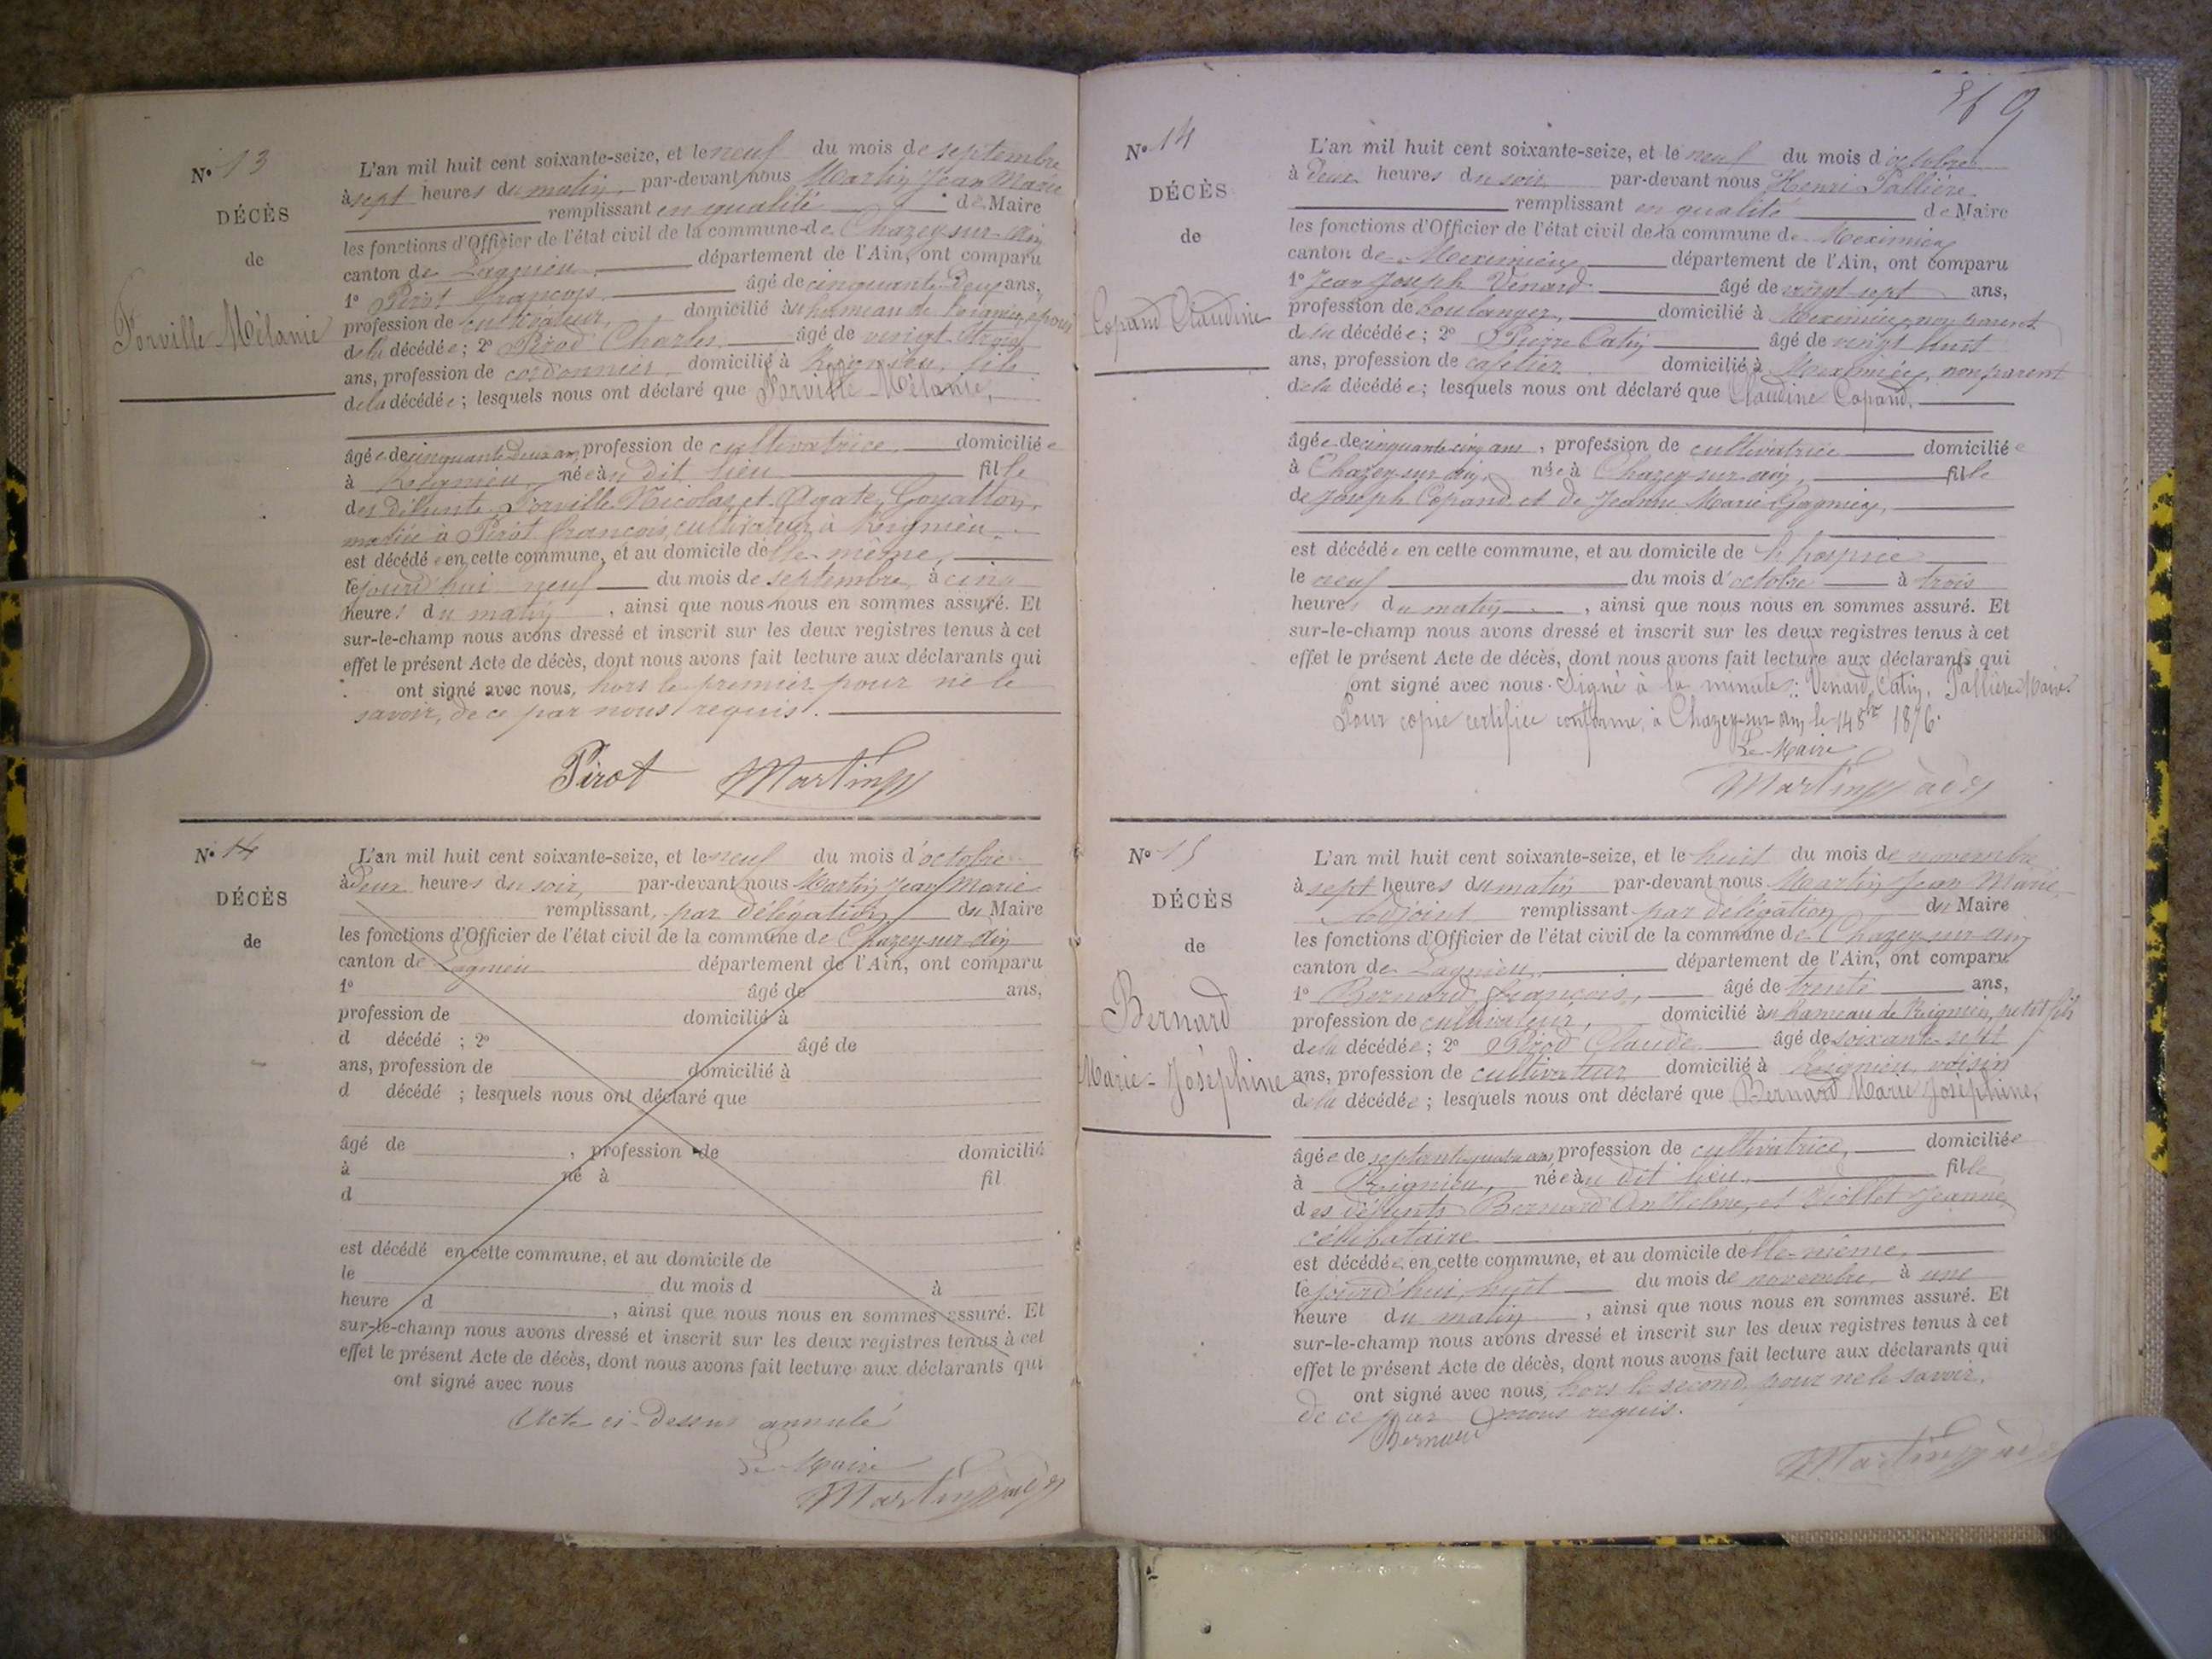 N° 13
DÉCÈS
de
Forville Mélanie
L'an mil huit cent soixante-seize, et le neuf du mois de septembre
à sept heures du matin, par-devant nous Martin Jean Marie
remplissant en qualité de Maire
les fonctions d'Officier de l'état civil de la commune de Chazey-sur-Ain
canton de Lagnieu, département de l'Ain, ont comparu
1° Pirot François, âgé de cinquante-deux ans,
profession de cultivateur, domicilié au hameau de Reignieu, époux
de la décédée ; 2° Pirod Charles, âgé de vingt-trois
ans, profession de cordonnier, domicilié à Reignieu, fils
de la décédée ; lesquels nous ont déclaré que Forville Mélanie,
âgée de cinquante deux ans, profession de cultivatrice, domiciliée
à Reignieu, née au dit lieu fille
des défunts Forville Nicolas et Agate
mariée à Pirot François, cultivateur à Reignieu.
est décédée en cette commune, et au domicile d'elle même,
le jourd'hui neuf du mois de septembre à cinq
heures du matin, ainsi que nous nous en sommes assuré. Et
sur-le-champ nous avons dressé et inscrit sur les deux registres tenus à cet
effet le présent Acte de décès, dont nous avons fait lecture aux déclarants qui
ont signé avec nous, hors le premier pour ne le
savoir, de ce par nous requis.
Pirot Martin
N° 14
DÉCÈS
de
L'an mil huit cent soixante-seize, et le neuf du mois d'octobre
à deux heures du soir, par-devant nous Martin Jean Marie
remplissant, par délégation du Maire
les fonctions d'Officier de l'état civil de la commune de Chazey-sur-Ain
canton de Lagnieu département de l'Ain, ont comparu
1° âgé de ans,
profession de domicilié à
d décédé ; 2° âgé de
ans, profession de domicilié à
d décédé ; lesquels nous ont déclaré que
âgé de , profession de domicilié
à né à fil
d
est décédé en cette commune, et au domicile de
le du mois d à
heure d , ainsi que nous nous en sommes assuré. Et
sur-le-champ nous avons dressé et inscrit sur les deux registres tenus à cet
effet le présent Acte de décès, dont nous avons fait lecture aux déclarants qui
ont signé avec nous
Acte ci-dessus annulé
Le Maire
Martin
9
N° 14
DÉCÈS
de
Copand Claudine
L'an mil huit cent soixante-seize, et le neuf du mois d'octobre
à deux heures du soir par-devant nous Henri Pallière
remplissant en qualité de Maire
les fonctions d'Officier de l'état civil de la commune de Meximieux
canton de Meximieux département de l'Ain, ont comparu
1° Jean Joseph Venard âgé de vingt sept ans,
profession de boulanger, domicilié à Meximieux, non parent
de la décédée ; 2° Pierre Catin âgé de vingt huit
ans, profession de cafetier domicilié à Meximieux, non parent
de la décédée ; lesquels nous ont déclaré que Claudine Copand,
âgée de cinquante cinq ans, profession de cultivatrice domiciliée
à Chazey-sur-Ain, née à Chazey-sur-Ain, fille
de Joseph Copand et de Jeanne Marie Gagnieux,
est décédée en cette commune, et au domicile de l'hospice
le neuf du mois d'octobre à trois
heures du matin, ainsi que nous nous en sommes assuré. Et
sur-le-champ nous avons dressé et inscrit sur les deux registres tenus à cet
effet le présent Acte de décès, dont nous avons fait lecture aux déclarants qui
ont signé avec nous. Signé à la minute : Venard, Catin, Pallière Maire.
Pour copie certifiée conforme, à Chazey-sur-Ain, le 14 8bre 1876.
Le Maire
Martin
N° 15
DÉCÈS
de
Bernard
Marie-Joséphine
L'an mil huit cent soixante-seize, et le huit du mois de novembre
à sept heures du matin par-devant nous Martin Jean Marie,
Adjoint remplissant par délégation du Maire
les fonctions d'Officier de l'état civil de la commune de Chazey-sur-Ain
canton de Lagnieu, département de l'Ain, ont comparu
1° Bernard François, âgé de trente ans,
profession de cultivateur, domicilié au hameau de Reignieu, petit fils
de la décédée ; 2° Pirod Claude âgé de soixante-sept
ans, profession de cultivateur domicilié à Reignieu, voisin
de la décédée ; lesquels nous ont déclaré que Bernard Marie Joséphine,
âgée de septante quatre ans, profession de cultivatrice, domiciliée
à Reignieu, née au dit lieu, fille
des défunts Bernard Anthelme, et Jeanne
célibataire
est décédée en cette commune, et au domicile d'elle-même,
le jourd'hui, huit du mois de novembre, à une
heure du matin, ainsi que nous nous en sommes assuré. Et
sur-le-champ nous avons dressé et inscrit sur les deux registres tenus à cet
effet le présent Acte de décès, dont nous avons fait lecture aux déclarants qui
ont signé avec nous, hors le second, pour ne le savoir,
de ce par nous requis.
Bernard
Martin